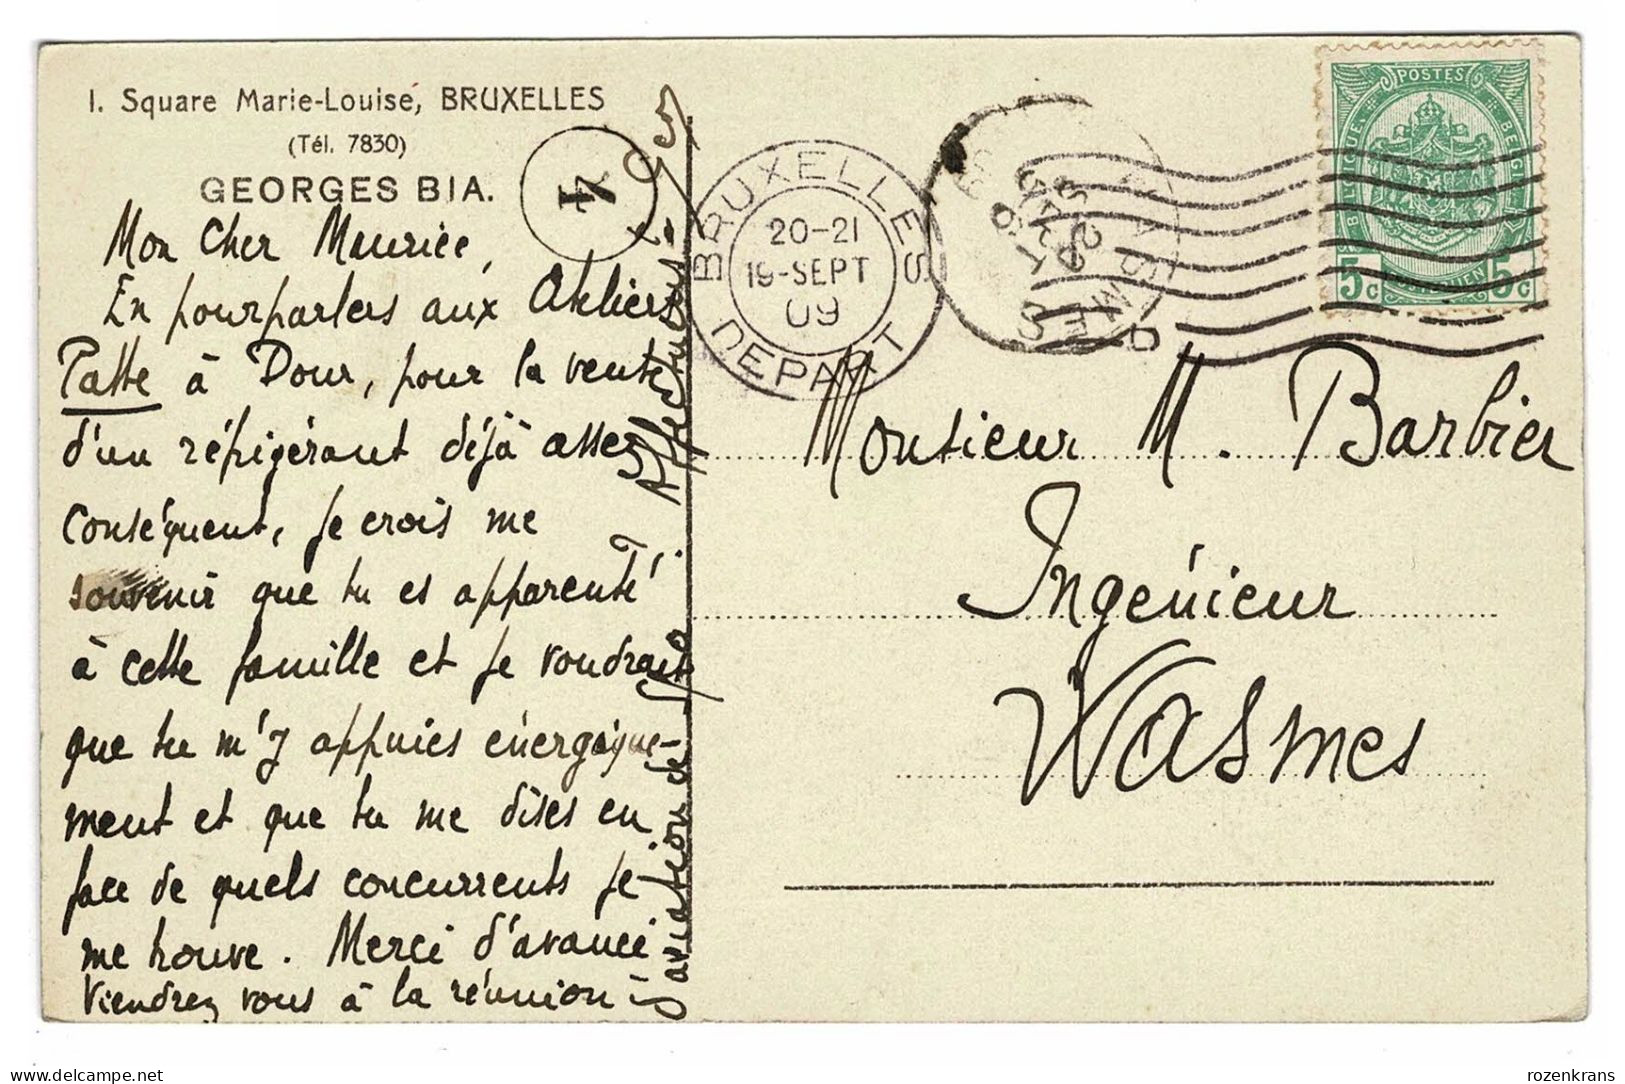 1. Square Marie-Louise, BRUXELLES
(Tél. 7830)
GEORGES BIA.
4
Mon Cher Maurice,
En pourparlers aux Ateliers
Patte à Dour, pour la vente
d'un réfrigérant déjà assez
conséquent, je crois me
souvenir que tu es apparenté
à cette famille et je voudrais
que tu m'y appuies énergique-
ment et que tu me dises en
face de quels concurrents je
me trouve. Merci d'avance
Viendrez vous à la réunion
d'aviation de Spa ? Affectueux
BRUXELLES
20-21
19-SEPT
09
DEPART
WASMES
POSTES
BELGIQUE
BELGIE
5c 5c
Monsieur M. Barbier
Ingénieur
Wasmes
rozenkrans